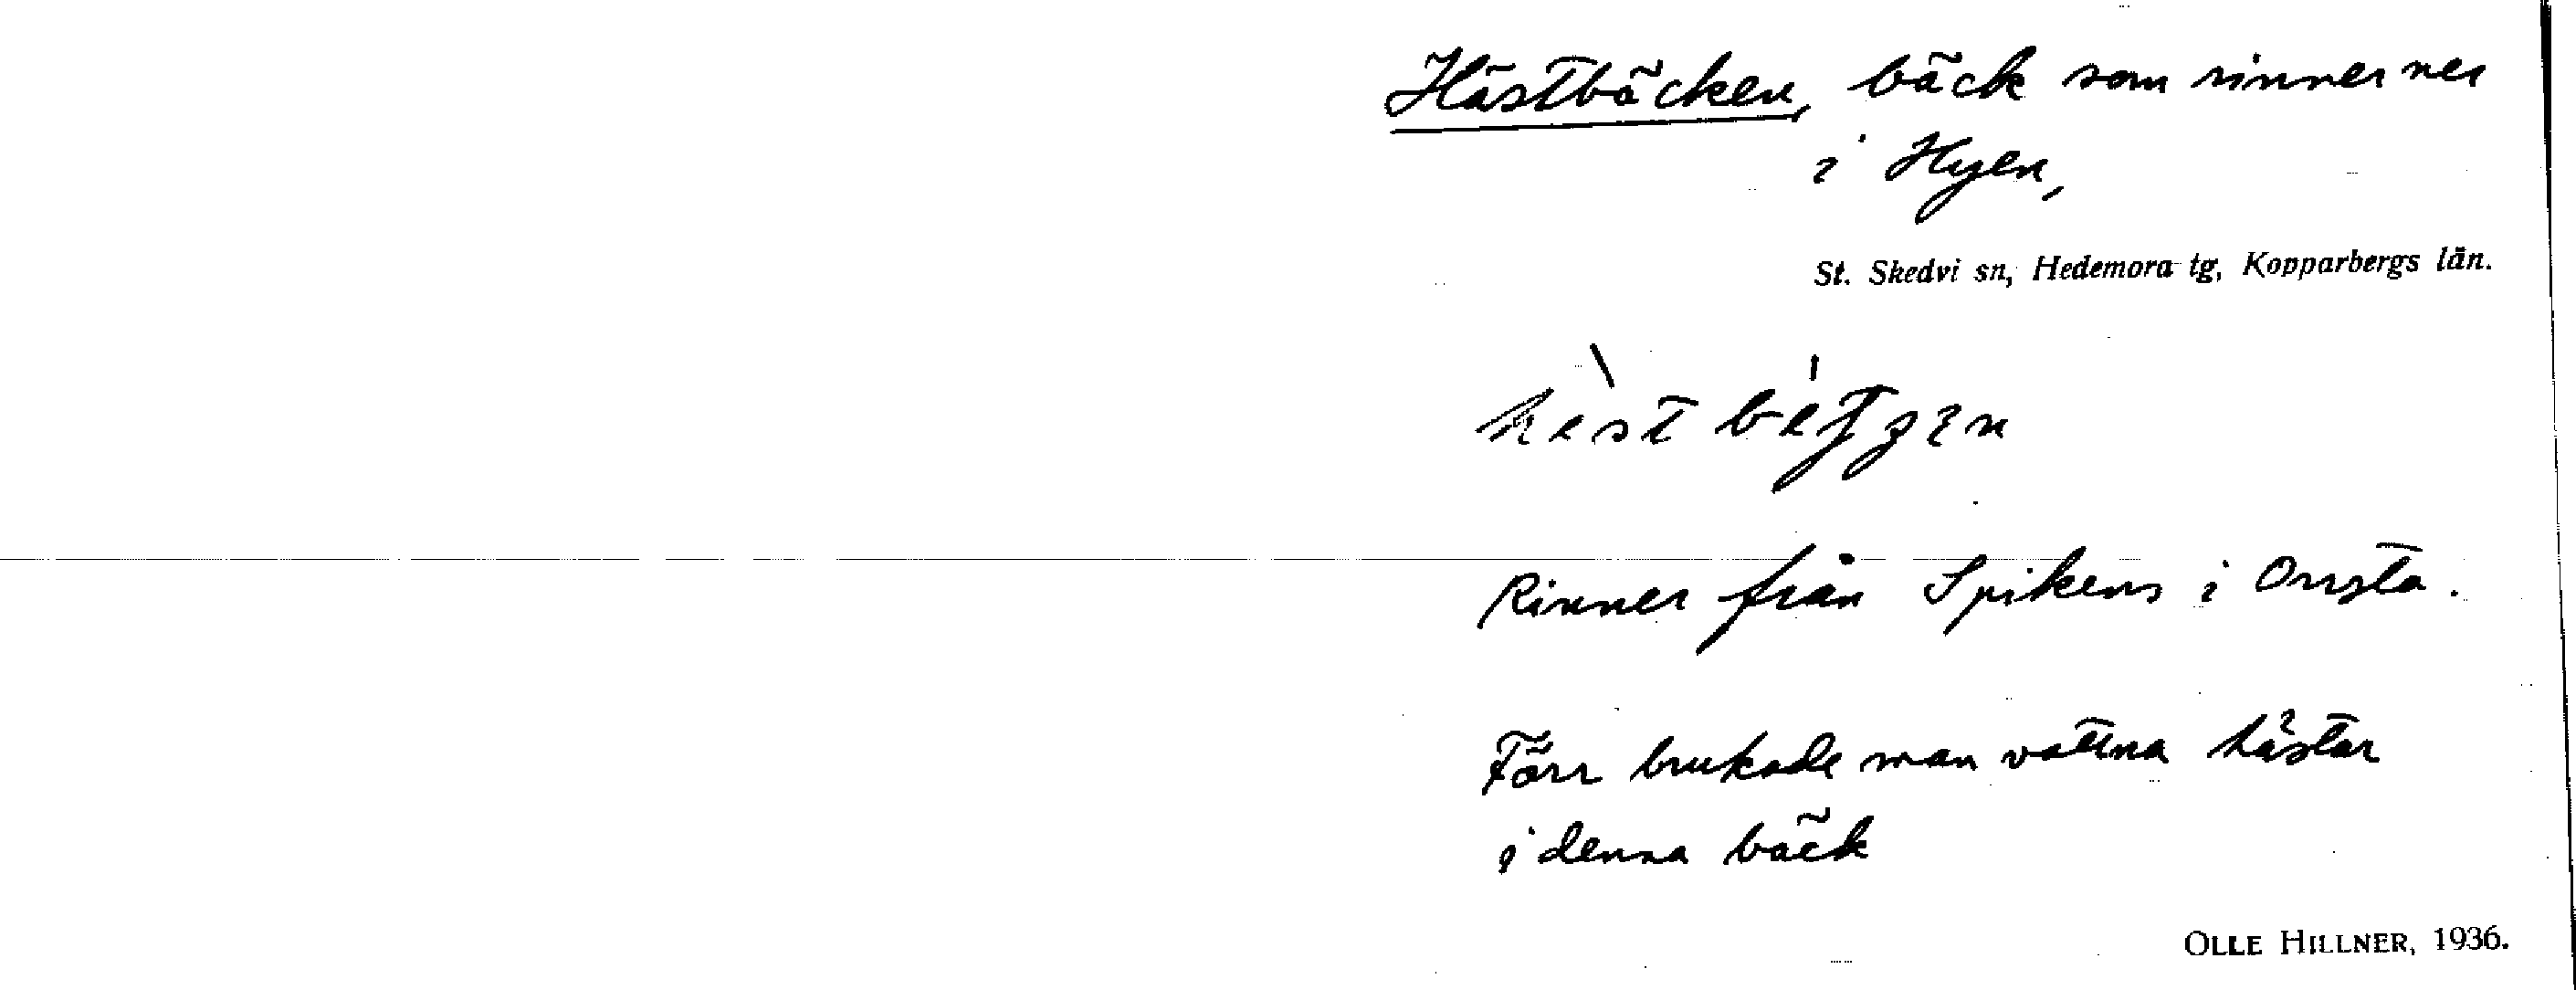 Hästbäcken, bäck som rinner ner
i Hyen,
St. Skedvi sn, Hedemora tg, Kopparbergs län.
Rinner från Spikens i Onsta.
Förr brukade man vattna hästar
i denna bäck
OLLE HILLNER, 1936.